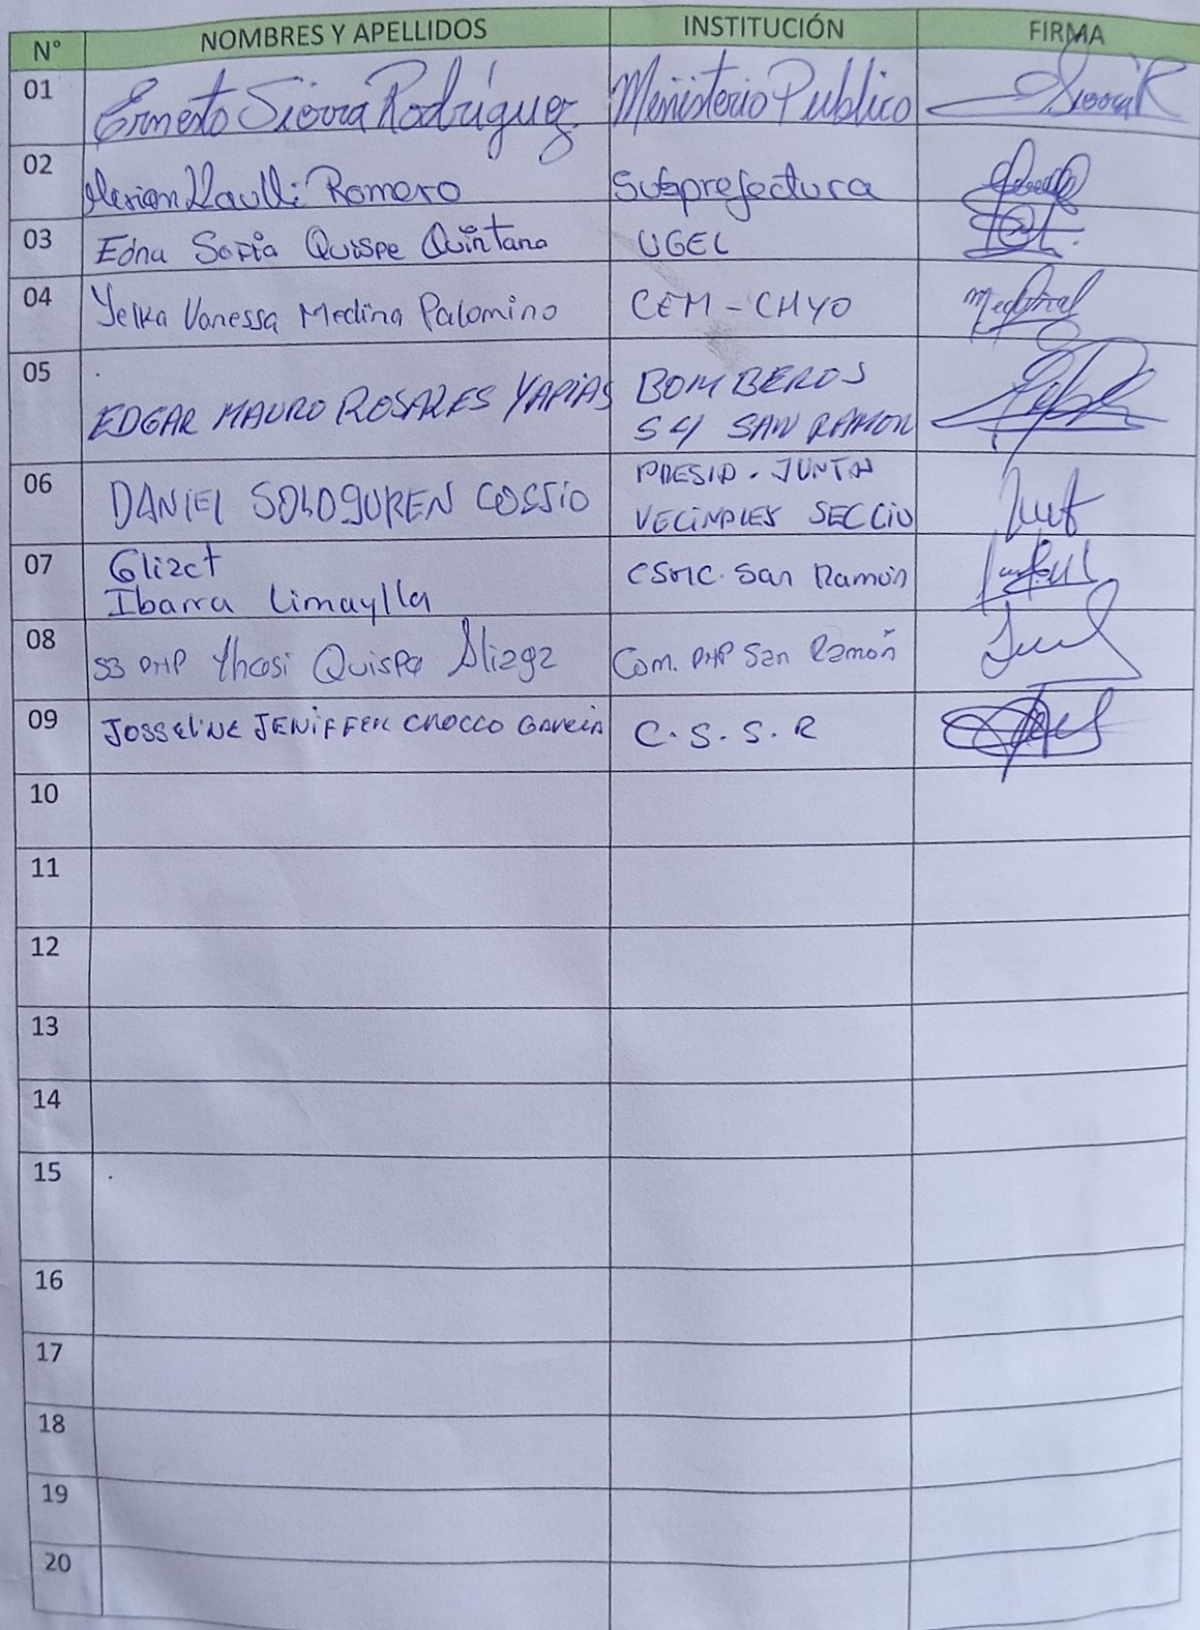 N° NOMBRES Y APELLIDOS INSTITUCIÓN FIRMA
01 Ernesto Sierra Rodríguez Ministerio Publico SierraR
02 Romero Subprefectura
03 Edna Sofia Quispe Quintana UGEL
04 Yelka Vanessa Medina Palomino CEM - CHYO
05 EDGAR MAURO ROSALES YAPIAS BOMBEROS
54 SAN RAMON
06 DANIEL SOLOGUREN COSSIO PRESID. JUNTA
VECINALES SECCIO
07 Glizet
Ibarra Limaylla San Ramón
08 S3 PNP Yhosi Quispe Aliaga Com. PNP San Ramón
09 JOSSELINE JENIFFER CROCCO GARCIA C.S.S.R
10
11
12
13
14
15
16
17
18
19
20